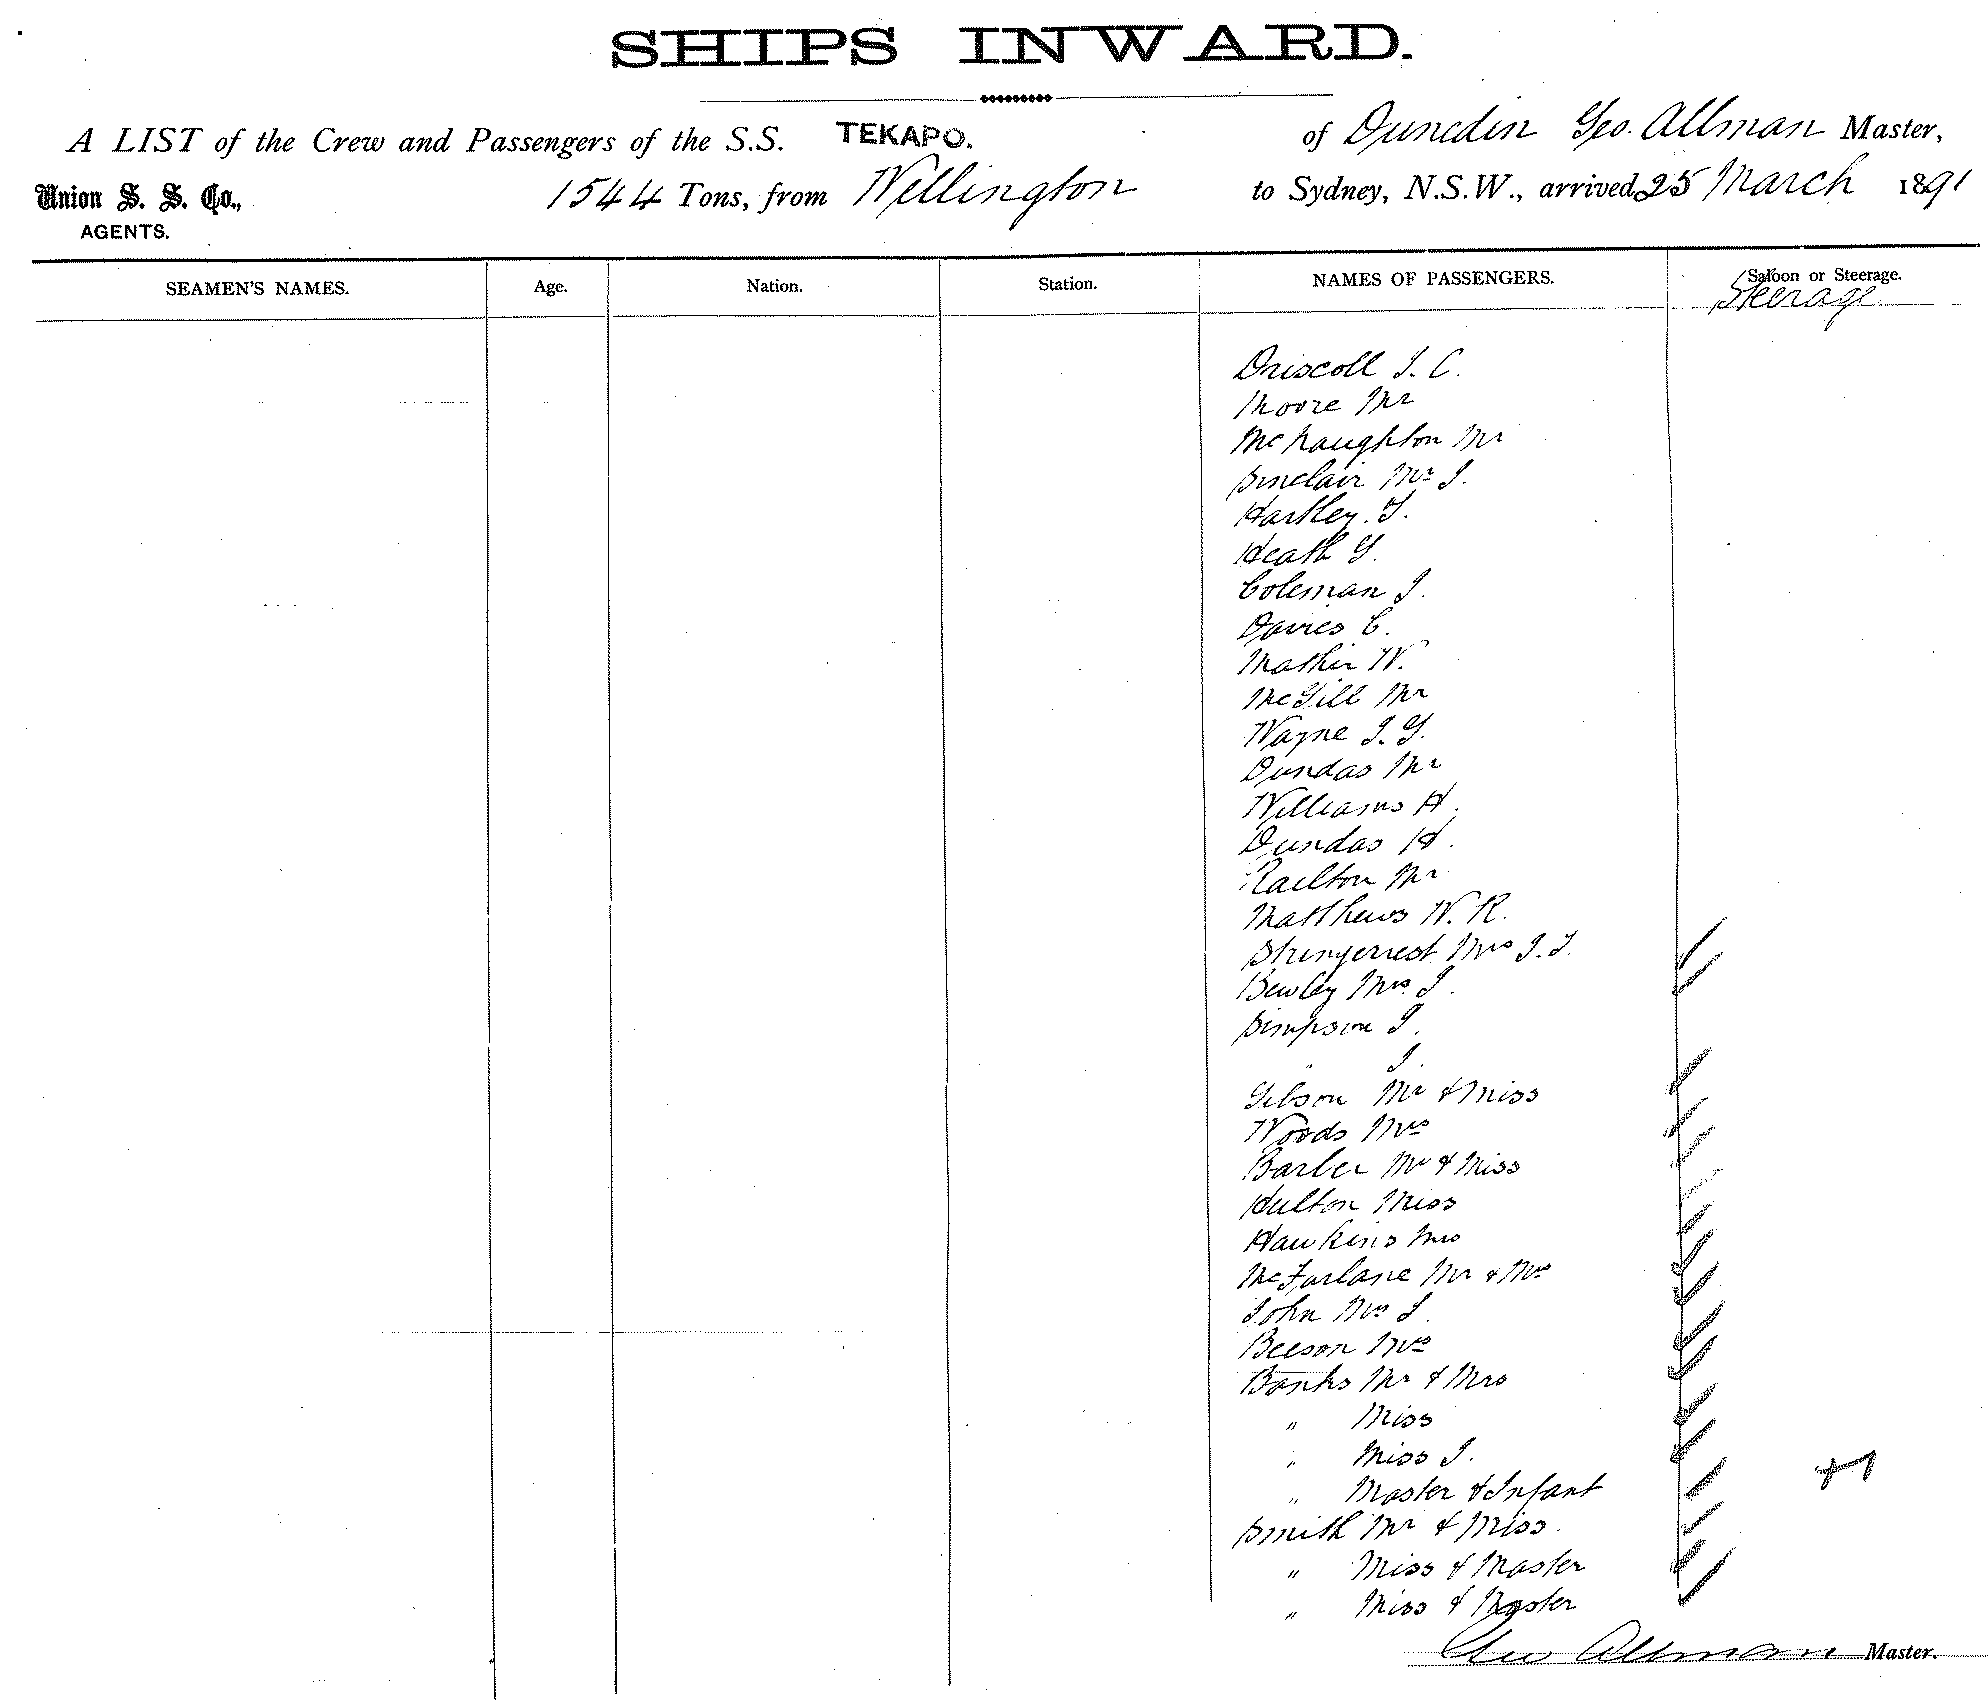 SHIPS INWARD.
A LIST of the Crew and Passengers of the S.S. TEKAPO. of Dunedin Geo. Allman Master,
Union S. S. Co., 1544 Tons, from Wellington to Sydney, N.S.W., arrived 25 March 1891
AGENTS.
SEAMEN'S NAMES. Age. Nation. Station. NAMES OF PASSENGERS. Saloon or Steerage.
Steerage
Driscoll J. C.
Moore Mr
McNaughton Mr
Sinclair Mr J.
Hartley. T.
Heath G.
Coleman J.
Davies C.
Mathir W.
McGill Mr
Wayne J. G.
Dundas Mr
Williams H.
Dundas H.
Railton Mr
Matthews W. R.
Mrs J. T.
Bewley Mrs. J.
Simpson J.
" J.
Gibson Mr & Miss
Woods Mrs
Barber Mr & Miss
Hulton Miss
Hawkins Mrs
McFarlane Mr & Mrs
John Mrs J.
Beeson Mrs
Banks Mr & Mrs
" Miss
" Miss J.
" Master & Infant
Smith Mr & Miss.
" Miss & Master
" Miss & Master
Geo Allman Master.